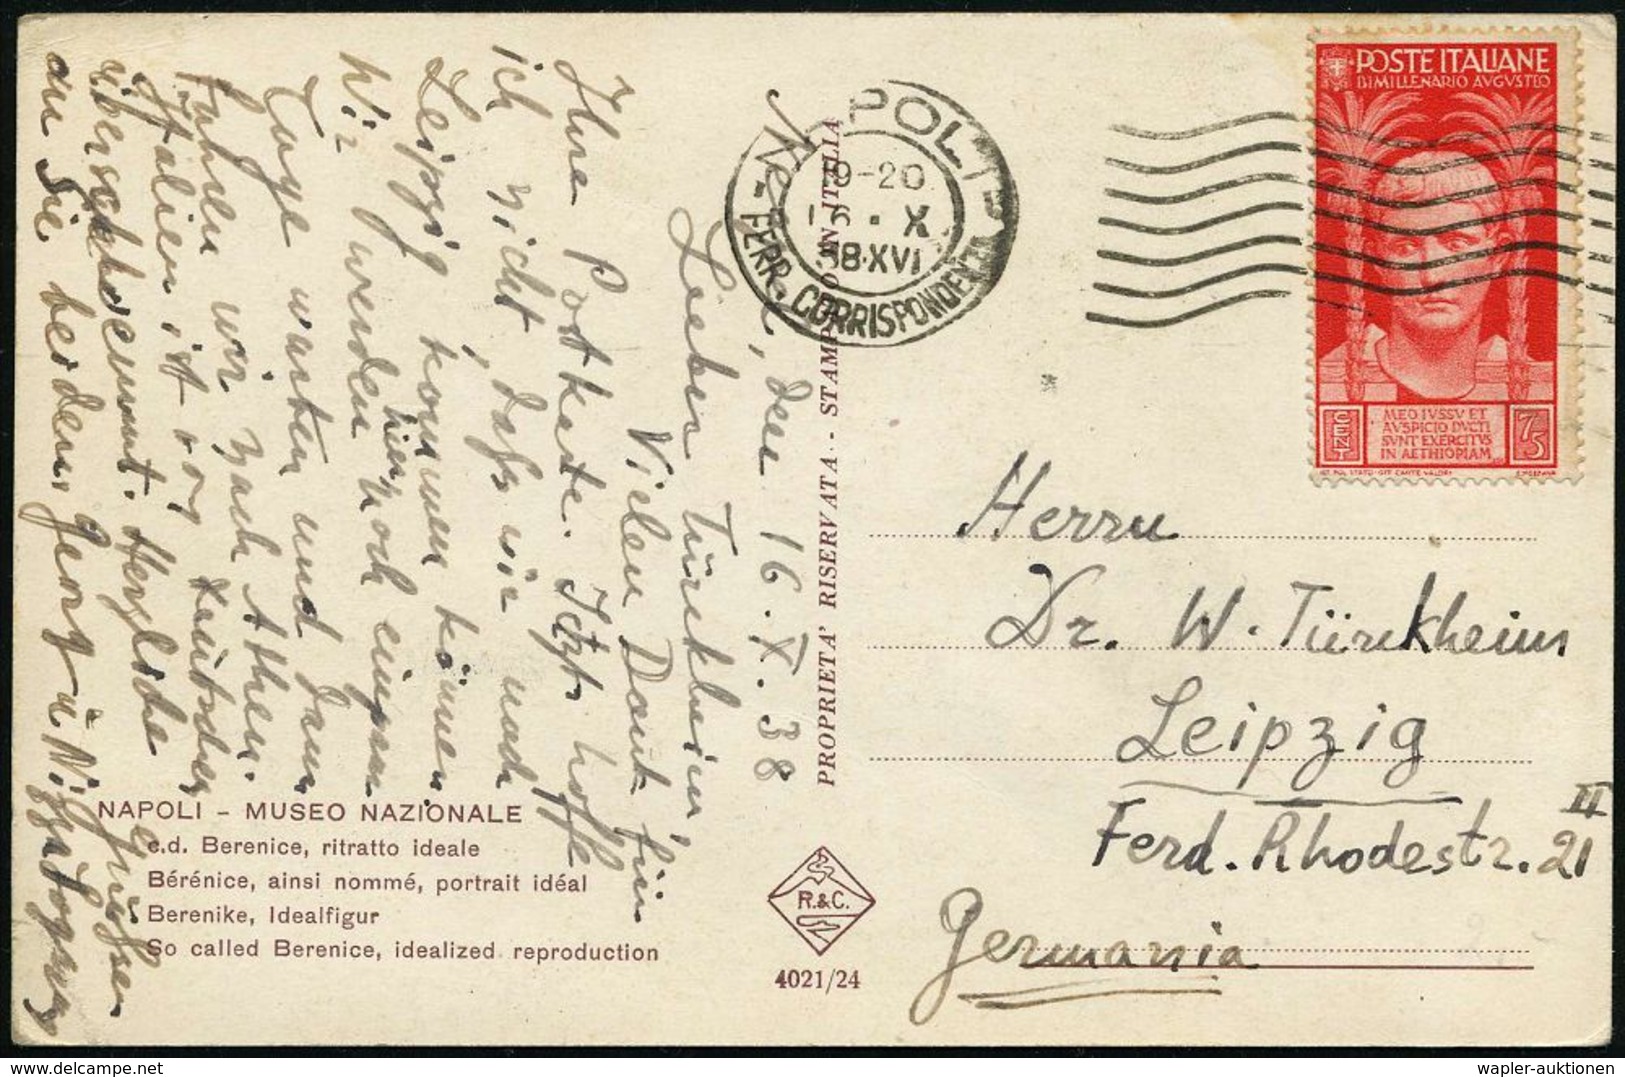 Neapel, den 16.X.38
Lieber Türckheim,
Vielen Dank für
Ihre Postkarte. Jetzt hoffe
ich nicht, dass wir nach
Leipzig kommen können
Wir werden hier noch einpaar
Tage warten und dann
fahren wir nach Athen.
Italien ist von Deutschen
überschwemmt. Herzliche Grüsse
an Sie beiden
NAPOLI - MUSEO NAZIONALE
c.d. Berenice, ritratto ideale
Bérénice, ainsi nommé, portrait idéal
Berenike, Idealfigur
So called Berenice, idealized reproduction
PROPRIETA' RISERVATA - STAMPATO IN ITALIA
R.&C.
4021/24
NAPOLI
FERR. CORRISPONDENZE
19-20
X
38·XVI
POSTE ITALIANE
BIMILLENARIO AVGVSTEO
MEO IVSSV ET
AVSPICIO DVCTI
SVNT EXERCITVS
IN AETHIOPIAM
CENT
75
Herrn
Dr. W. Türckheim
Leipzig
II
Ferd. Rhodestr. 21
Germania
wapler-auktionen